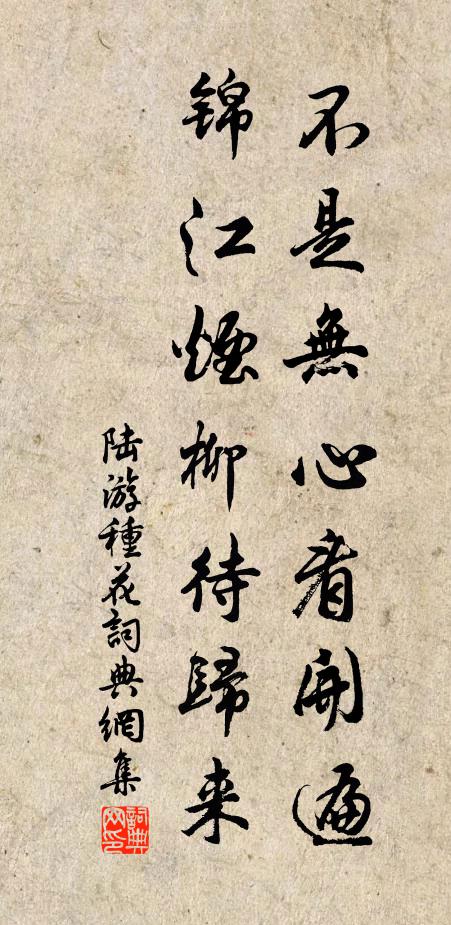 不是無心看開遍
锦江煙柳待歸来
陆游種花詞典網集
詞典网印